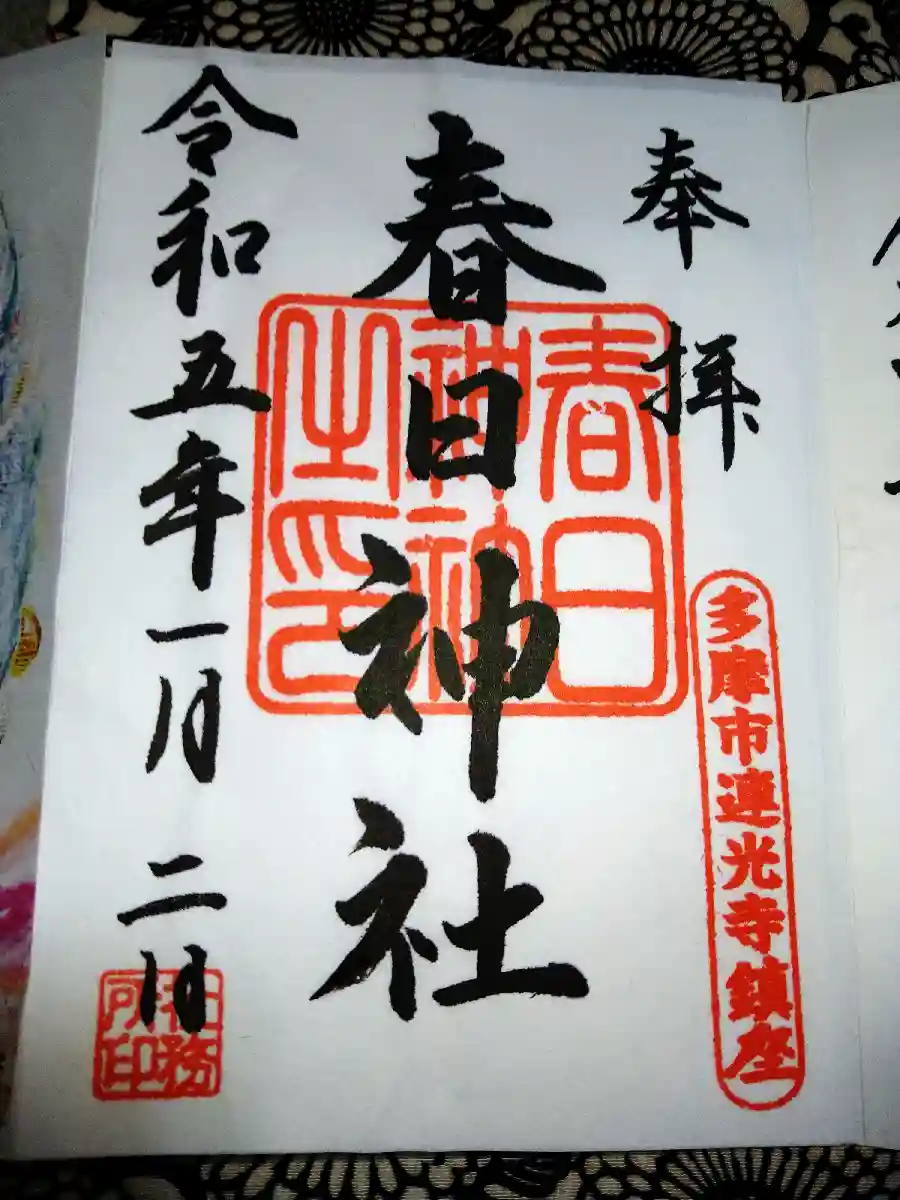 奉拝
多摩市連光寺鎮座
春日神社
春日
神社
之印
令和五年一月二日
社務
所印